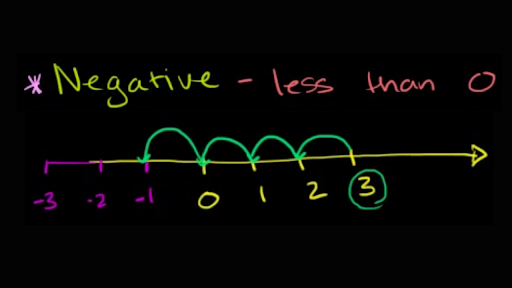 * Negative - less than 0
-3 -2 -1 0 1 2 3